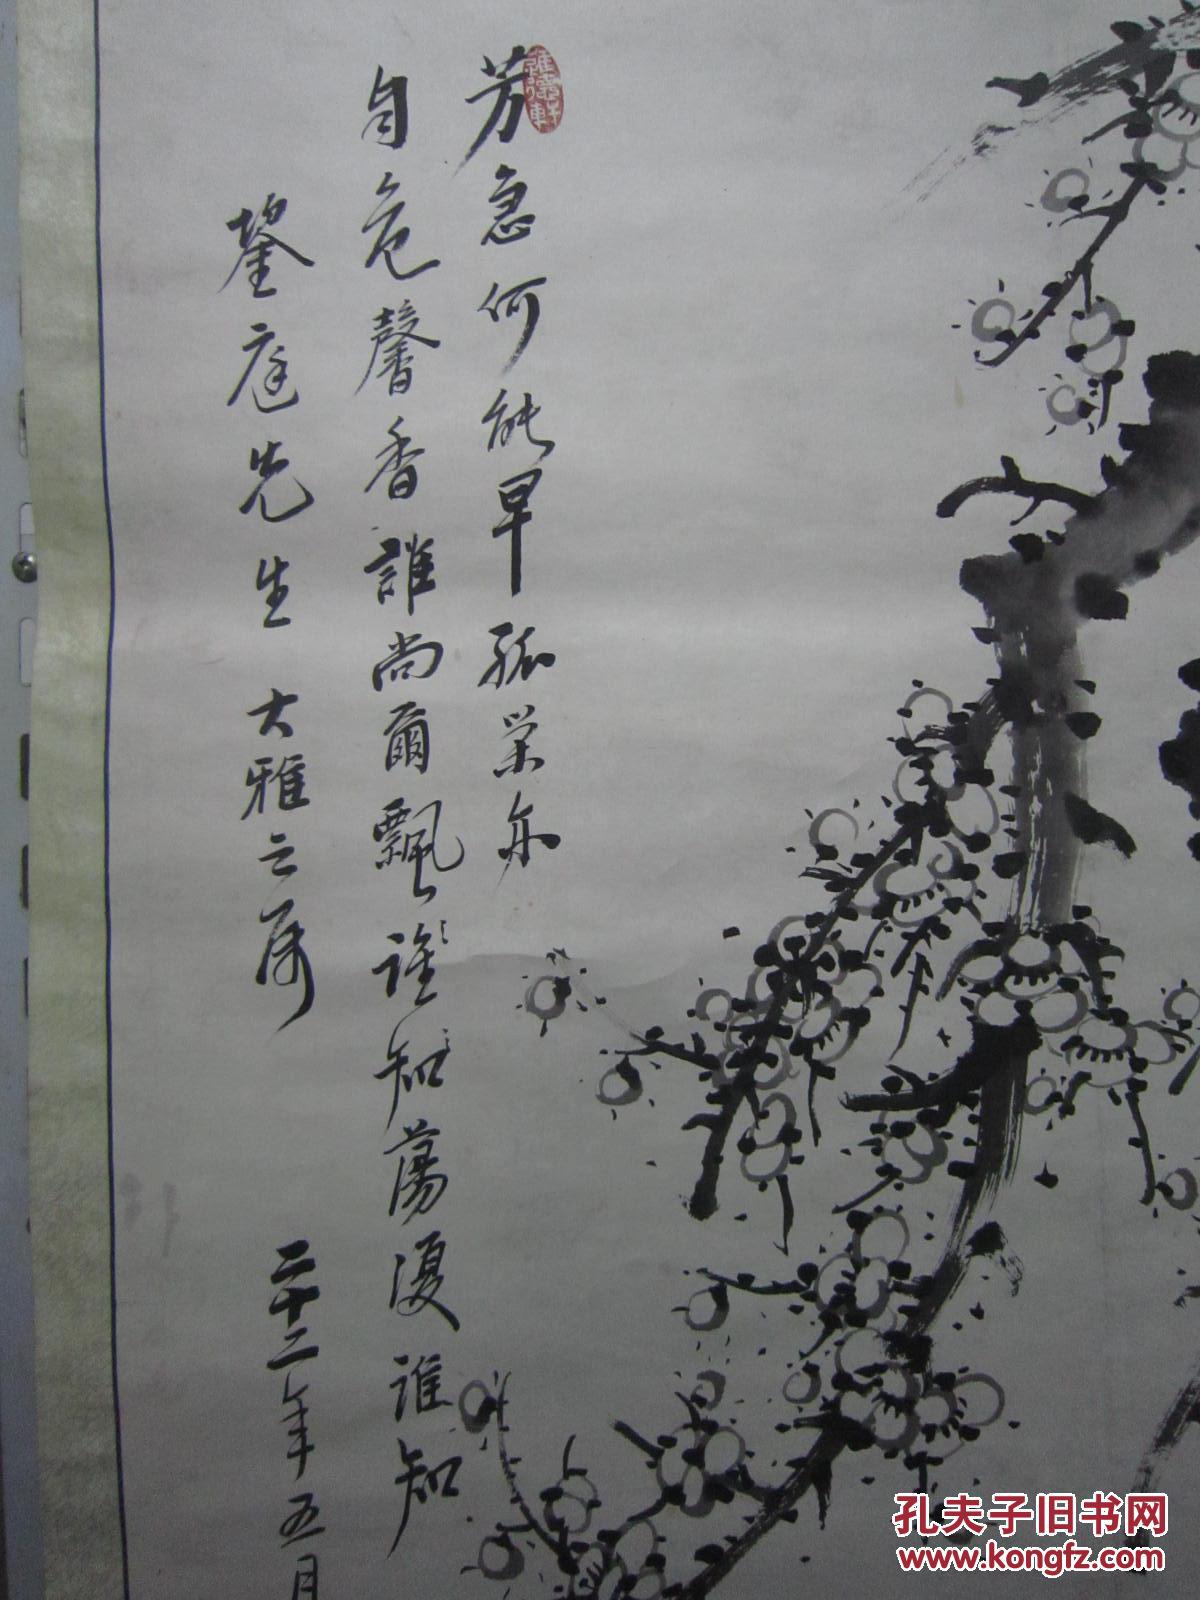 芳意何能早孤荣亦
自危馨香誰尚爾飄誰知蕩復誰知
庭先生大雅之屬
二十二年五月
孔夫子旧书网
www.kongfz.com